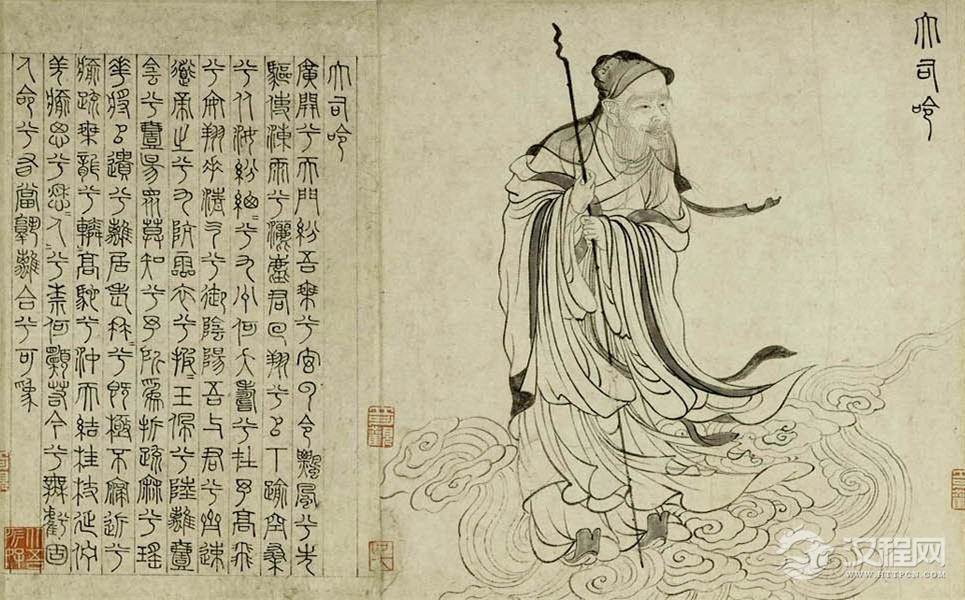 大司命
大司命
廣開兮天門紛吾乗兮玄雲令飄風兮先
驅使涷雨兮灑塵君回翔兮㠯下踰空桑
兮从汝紛緫〻兮九州何夭壽兮在予高飛
兮安翔乗清气兮御陰陽吾与君兮齊速
導帝之兮九阬靈衣兮披〻玉佩兮陸離壹
陰兮壹昜衆莫知兮予所爲折疏麻兮瑶
華將㠯遺兮離居老冉〻兮既極不寖近兮
愈疏乗龍兮轔〻高馳兮沖天結桂枝延佇
羌愈思兮愁〻人〻兮柰何願若今兮無虧固
人命兮有當孰離合兮可爲
汉程网
WWW.HTTPCN.COM